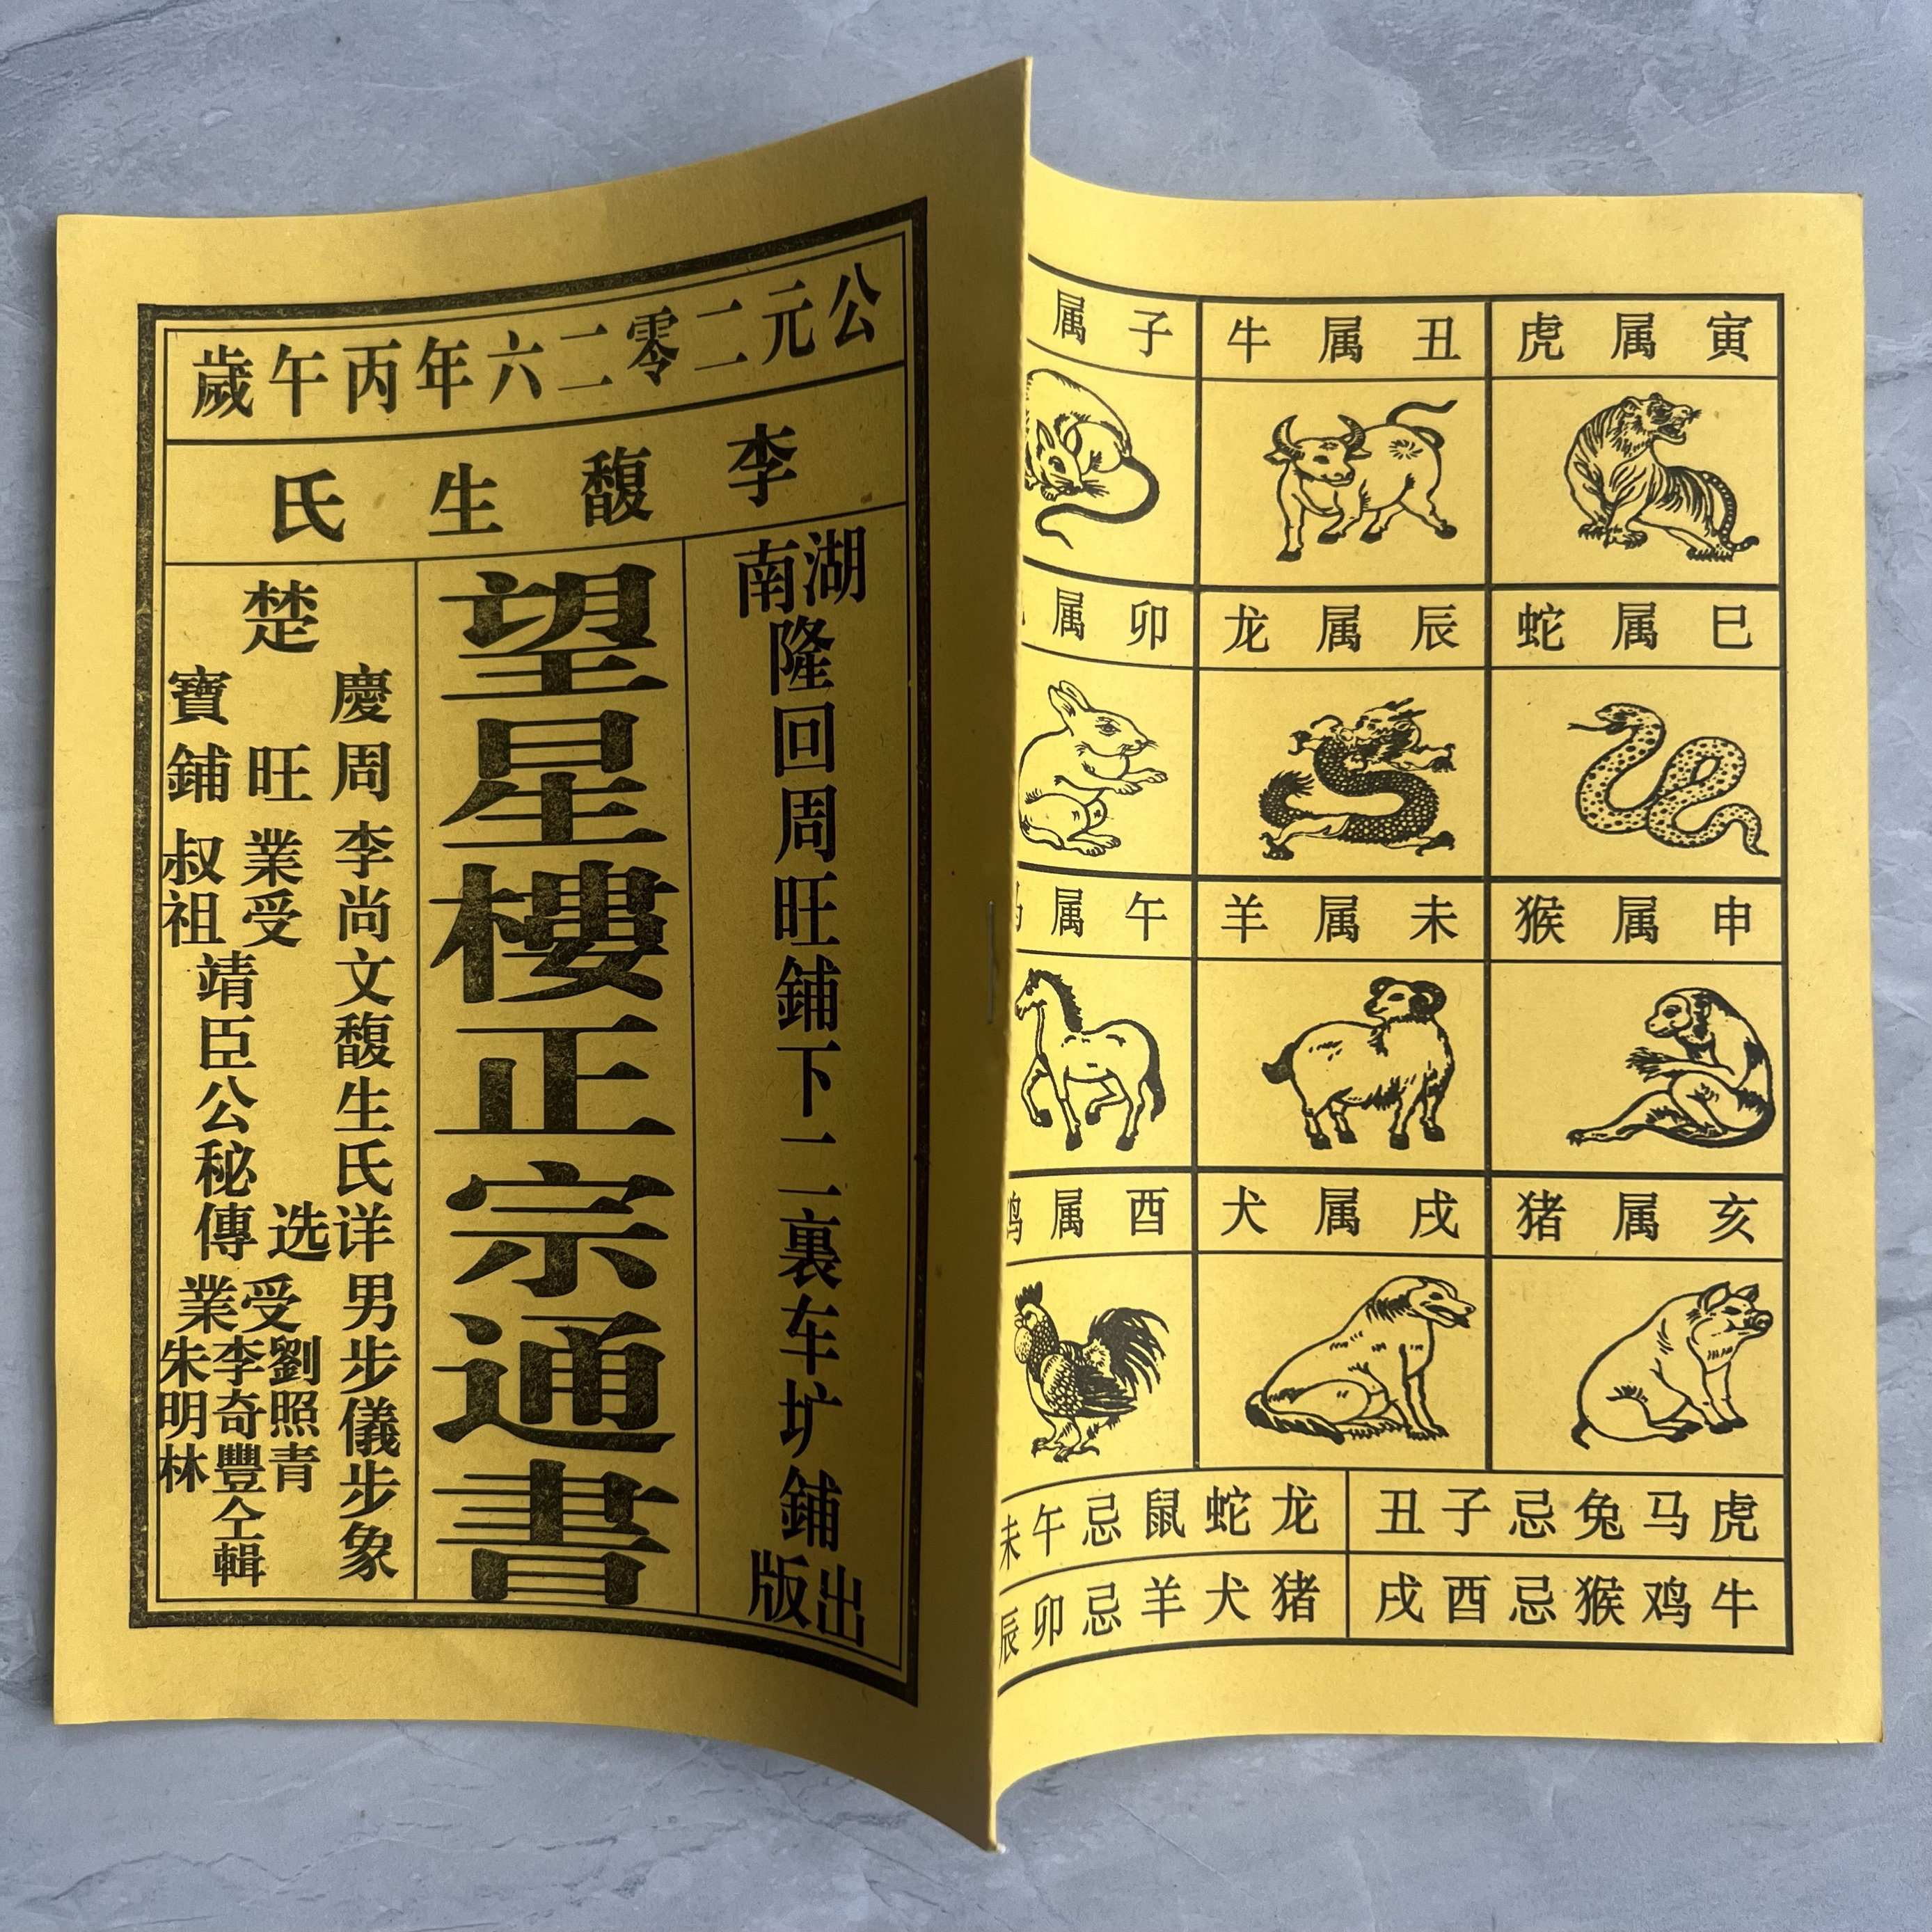 公元二零二六年丙午歲
李馥生氏
湖南隆回周旺鋪下二裏车圹鋪出版
望星樓正宗通書
楚
寶慶
鋪旺周
李尚文馥生氏详选
男步儀步象
業受叔祖靖臣公秘傳
受業
劉照青
李奇豐
朱明林
仝輯
寅属虎
丑属牛
子属
巳属蛇
辰属龙
卯属
申属猴
未属羊
午属
亥属猪
戌属犬
酉属鸡
虎马兔忌子丑
龙蛇鼠忌午未
牛鸡猴忌酉戌
猪犬羊忌卯辰